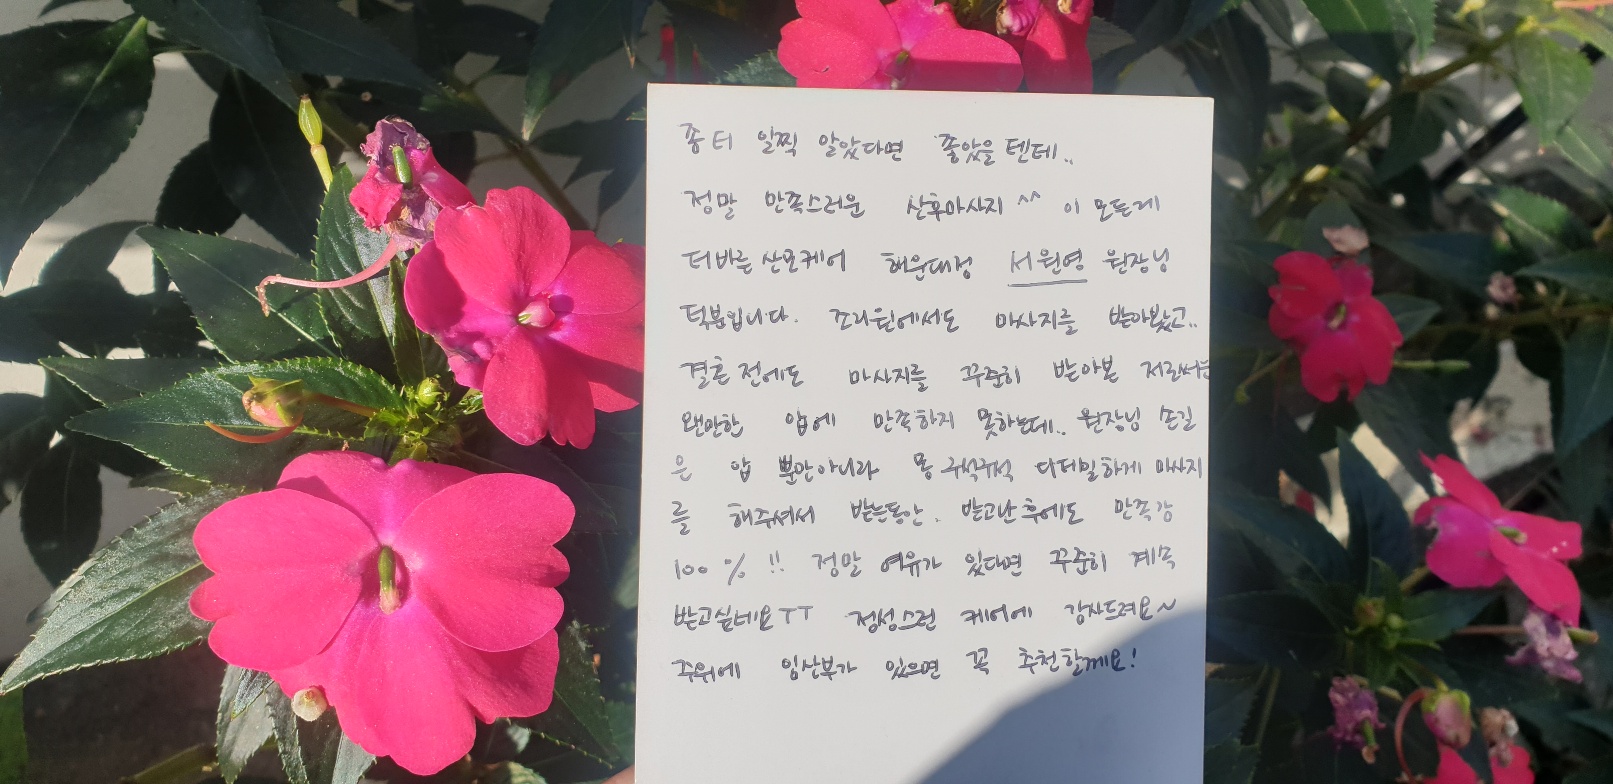 좀 더 일찍 알았다면 좋았을 텐데..
정말 만족스러운 산후마사지 ^^ 이 모든게
더바른산모케어 해운대점 서원영 원장님
덕분입니다. 조리원에서도 마사지를 받아봤고..
결혼 전에도 마사지를 꾸준히 받아본 저로써는
왠만한 압에 만족하지 못하는데.. 원장님 손길
은 압 뿐만아니라 몸 구석구석 디테일하게 마사지
를 해주셔서 받는동안. 받고난 후에도 만족감
100% !! 정말 여유가 있다면 꾸준히 계속
받고싶네요ㅜㅜ 정성스런 케어에 감사드려요~
주위에 임산부가 있으면 꼭 추천할께요!